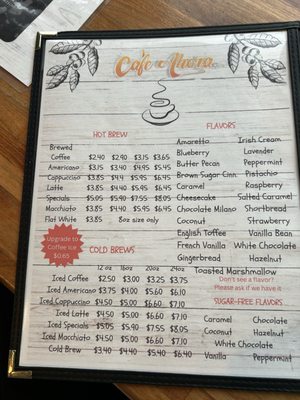 HOT BREW
Brewed
Coffee $2.40 $2.90 $3.15 $3.65
Americano $3.15 $3.40 $4.95 $5.45
Cappuccino $3.85 $4.45 $5.95 $6.45
Latte $3.85 $4.40 $5.95 $6.45
Specials $5.05 $5.90 $7.55 $8.05
Macchiato $3.85 $4.40 $5.95 $6.45
Flat White $3.85 8oz size only
Upgrade to
Coffee Ice
$0.65
COLD BREWS
12 oz 16oz 20oz 24oz
Iced Coffee $2.50 $3.00 $3.25 $3.75
Iced Americano $3.75 $4.00 $5.60 $6.10
Iced Cappuccino $4.50 $5.00 $6.60 7.10
Iced Latte $4.50 $5.00 $6.60 $7.10
Iced Specials $5.05 $5.90 $7.55 $8.05
Iced Macchiato $4.50 $5.00 $6.60 $7.10
Cold Brew $3.90 $4.40 $5.90 $6.40
FLAVORS
Amaretto Irish Cream
Blueberry Lavender
Butter Pecan Peppermint
Brown Sugar Cinn. Pistachio
Caramel Raspberry
Cheesecake Salted Caramel
Chocolate Milano Shortbread
Coconut Strawberry
English Toffee Vanilla Bean
French Vanilla White Chocolate
Gingerbread Hazelnut
Toasted Marshmallow
Don't see a flavor?
Please ask if we have it
SUGAR-FREE FLAVORS
Caramel Chocolate
Coconut Hazelnut
White Chocolate
Vanilla Peppermint